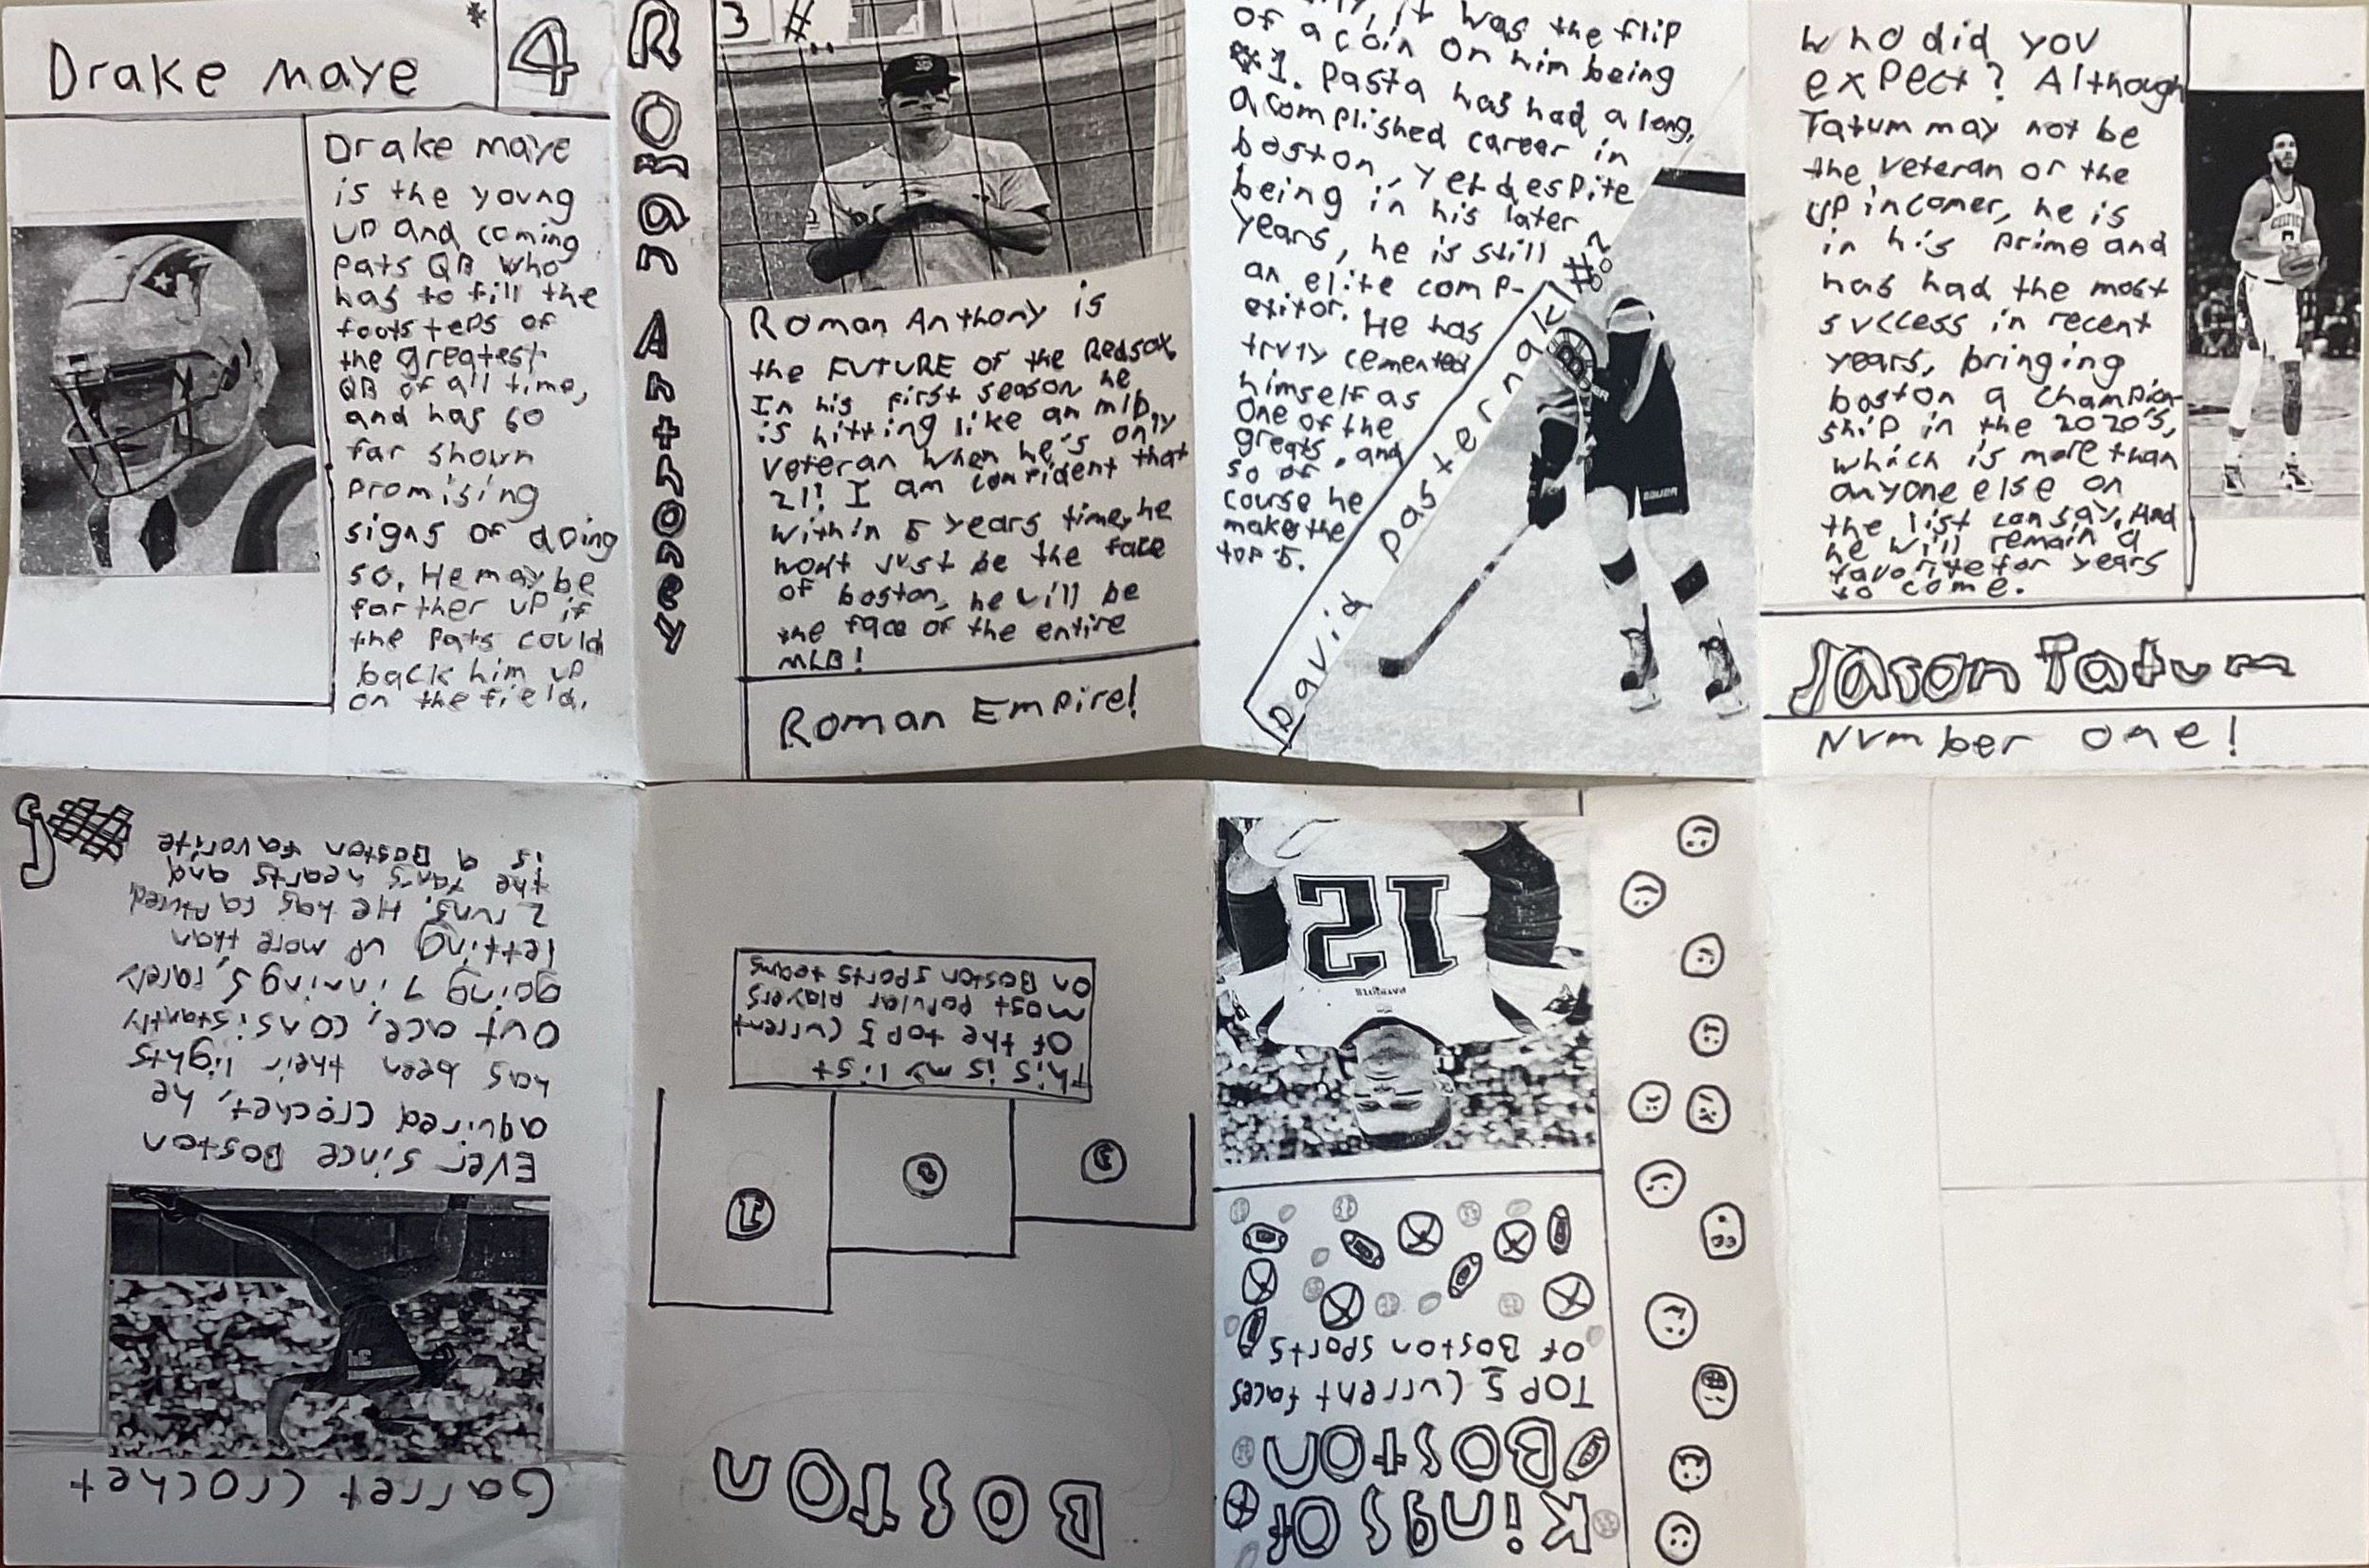 Drake maye
#
4
Drake maye
is the young
up and coming
pats QB who
has to fill the
footsteps of
the greatest
QB of all time,
and has so
far shown
promising
signs of doing
so. He may be
farther up if
the pats could
back him up
on the field.
Roman Anthony
3
#
Roman Anthony is
the FUTURE of the Redsox
In his first season he
is hitting like an mlb
veteran when he's only
21! I am confident that
within 5 years time, he
wont just be the face
of boston, he will be
the face of the entire
MLB!
Roman Empire!
it was the flip
of a coin on him being
#1. Pasta has had a long,
acomplished career in
boston, yet despite
being in his later
years, he is still
an elite comp-
etitor. He has
truly cemented
himself as
one of the
greats, and
so of
course he
makes the
top 5.
David Pasternak
#2
BAUER
Who did you
expect? Although
Tatum may not be
the veteran or the
up incomer, he is
in his prime and
has had the most
success in recent
years, bringing
boston a champion
ship in the 2020's,
which is more than
anyone else on
the list can say. And
he will remain a
favorite for years
to come.
CELTICS
Jason Tatum
Number one!
Garret Crochet
Ever since Boston
aquired Crochet, he
has been their lights
out ace, consistantly
going 7 innings, rarely
letting up more than
2 runs. He has captured
the fans hearts and
is a Boston favorite
#5
BOSTON
1
2
3
This is my list
Of the top 5 current
most popular players
on Boston sports teams
Kings Of
BOSTON
TOP 5 Current faces
of Boston sports
PATRIOTS
12